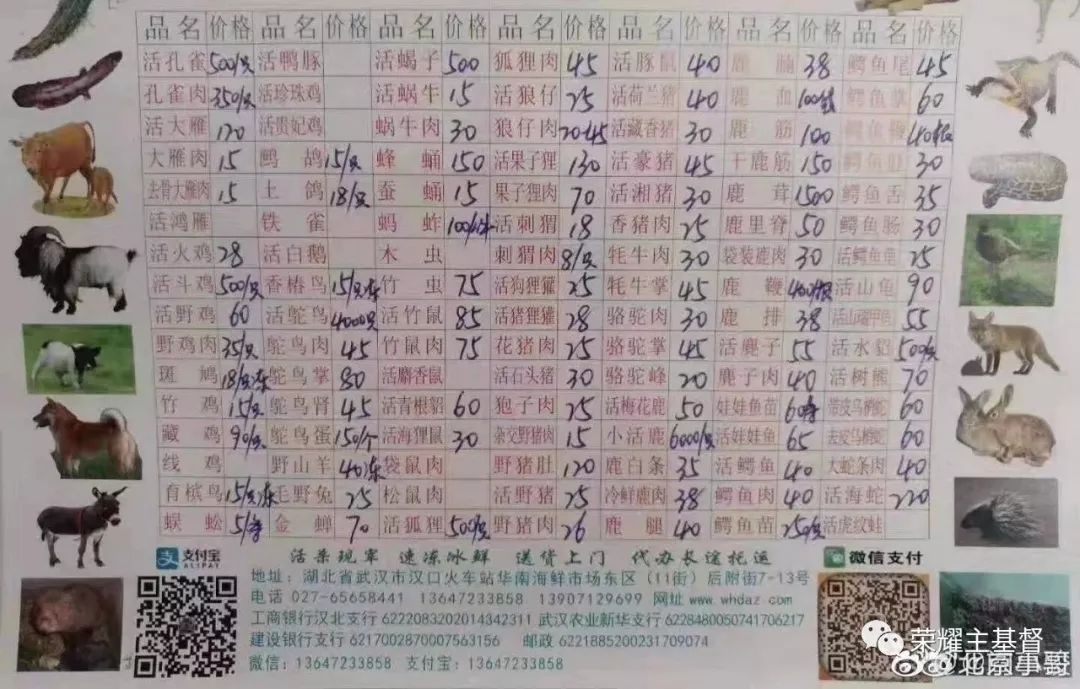 品名 价格 品名 价格 品名 价格 品名 价格 品名 价格 品名 价格 品名 价格
活孔雀 500/只 活鸭豚 活蝎子 500 狐狸肉 45 活豚鼠 40 鹿腩 38 鳄鱼尾 45
孔雀肉 350/只 活珍珠鸡 活蜗牛 15 活狼仔 25 活荷兰猪 40 鹿血 鳄鱼掌 60
活大雁 120 活贵妃鸡 蜗牛肉 30 狼仔肉 活藏香猪 30 鹿筋 100
大雁肉 15 鹧鸪 15/只 蜂蛹 150 活果子狸 130 活豪猪 45 干鹿筋 150 30
去骨大雁肉 15 土鸽 18/只 蚕蛹 15 果子狸肉 70 活湘猪 30 鹿茸 1500 鳄鱼舌 35
活鸿雁 铁雀 蚂蚱 活刺猬 18 香猪肉 25 鹿里脊 50 鳄鱼肠 30
活火鸡 28 活白鹅 木虫 刺猬肉 8/只 牦牛肉 30 袋装鹿肉 30 活鳄鱼龟 25
活斗鸡 500/只 香椿鸟 15/只冻 竹虫 75 活狗狸獾 25 牦牛掌 45 鹿鞭 活山龟 90
活野鸡 60 活鸵鸟 4000只 活竹鼠 85 活猪狸獾 28 骆驼肉 30 鹿排 38 55
野鸡肉 35/只 鸵鸟肉 45 竹鼠肉 75 花猪肉 25 骆驼掌 45 活麂子 55 活水貂 500/只
斑鸠 18/只冻 鸵鸟掌 80 活麝香鼠 活石头猪 30 骆驼峰 20 麂子肉 40 活树熊 70
竹鸡 15/只 鸵鸟肾 45 活青根貂 60 狍子肉 25 活梅花鹿 50 娃娃鱼苗 带皮乌梢蛇 60
藏鸡 90/只 鸵鸟蛋 150/个 活海狸鼠 30 杂交野猪肉 15 小活鹿 6000/只 活娃娃鱼 65 去皮乌梢蛇 60
线鸡 野山羊 40冻 袋鼠肉 野猪肚 120 鹿白条 35 活鳄鱼 40 大蛇条肉 40
育槟鸟 15/只冻 毛野兔 25 松鼠肉 活野猪 25 冷鲜鹿肉 38 鳄鱼肉 40 活海蛇 220
蜈蚣 金蝉 70 活狐狸 500/只 野猪肉 26 鹿腿 40 鳄鱼苗 250/只 活虎纹蛙
支付宝 ALIPAY 活杀现宰 速冻冰鲜 送货上门 代办长途托运 微信支付
地址：湖北省武汉市汉口火车站华南海鲜市场东区（11街）后附街7-13号
电话 027-65658441 13647233858 13907129699 网址 www.whdaz.com
工商银行汉北支行 6222083202014342311 武汉农业新华支行 6228480050741706217
建设银行支行 6217002870007563156 邮政 6221885200231709074
微信：13647233858 支付宝：13647233858
荣耀主基督